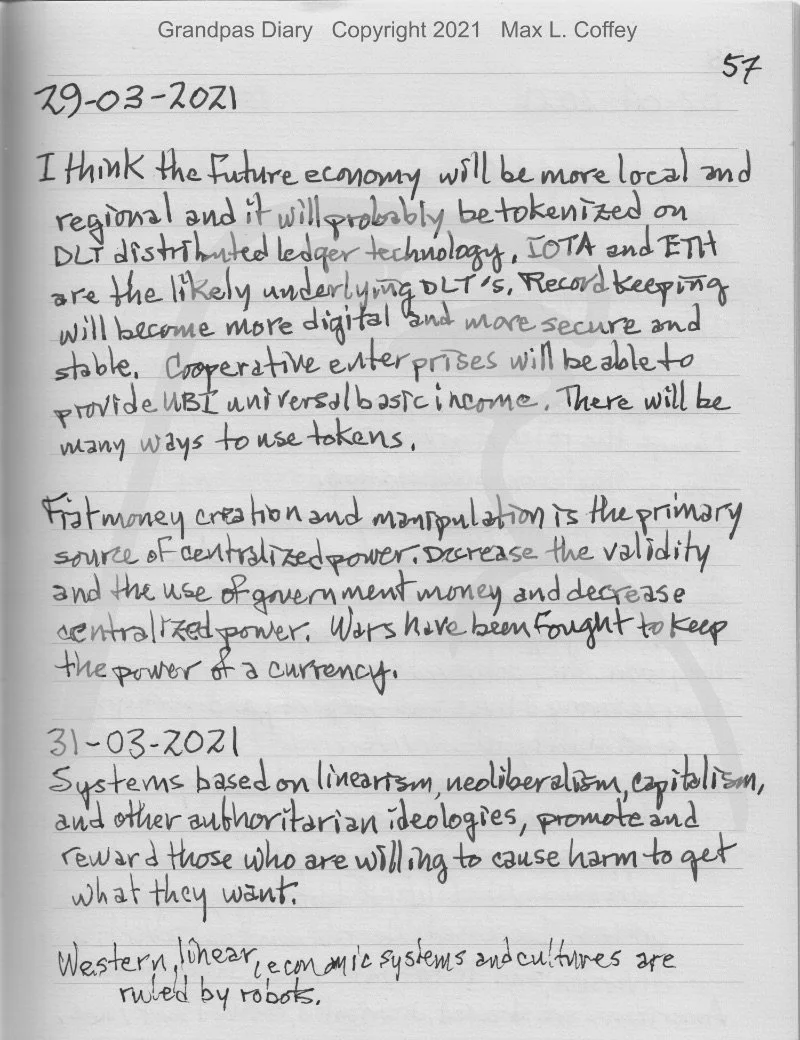 Grandpas Diary Copyright 2021 Max L. Coffey
57
29-03-2021
I think the future economy will be more local and
regional and it will probably be tokenized on
DLT distributed ledger technology. IOTA and ETH
are the likely underlying DLT's. Record keeping
will become more digital and more secure and
stable. Cooperative enterprises will be able to
provide UBI universal basic income. There will be
many ways to use tokens.
Fiat money creation and manipulation is the primary
source of centralized power. Decrease the validity
and the use of government money and decrease
centralized power. Wars have been fought to keep
the power of a currency.
31-03-2021
Systems based on linearism, neoliberalism, capitalism,
and other authoritarian ideologies, promote and
reward those who are willing to cause harm to get
what they want.
Western, linear, economic systems and cultures are
ruled by robots.